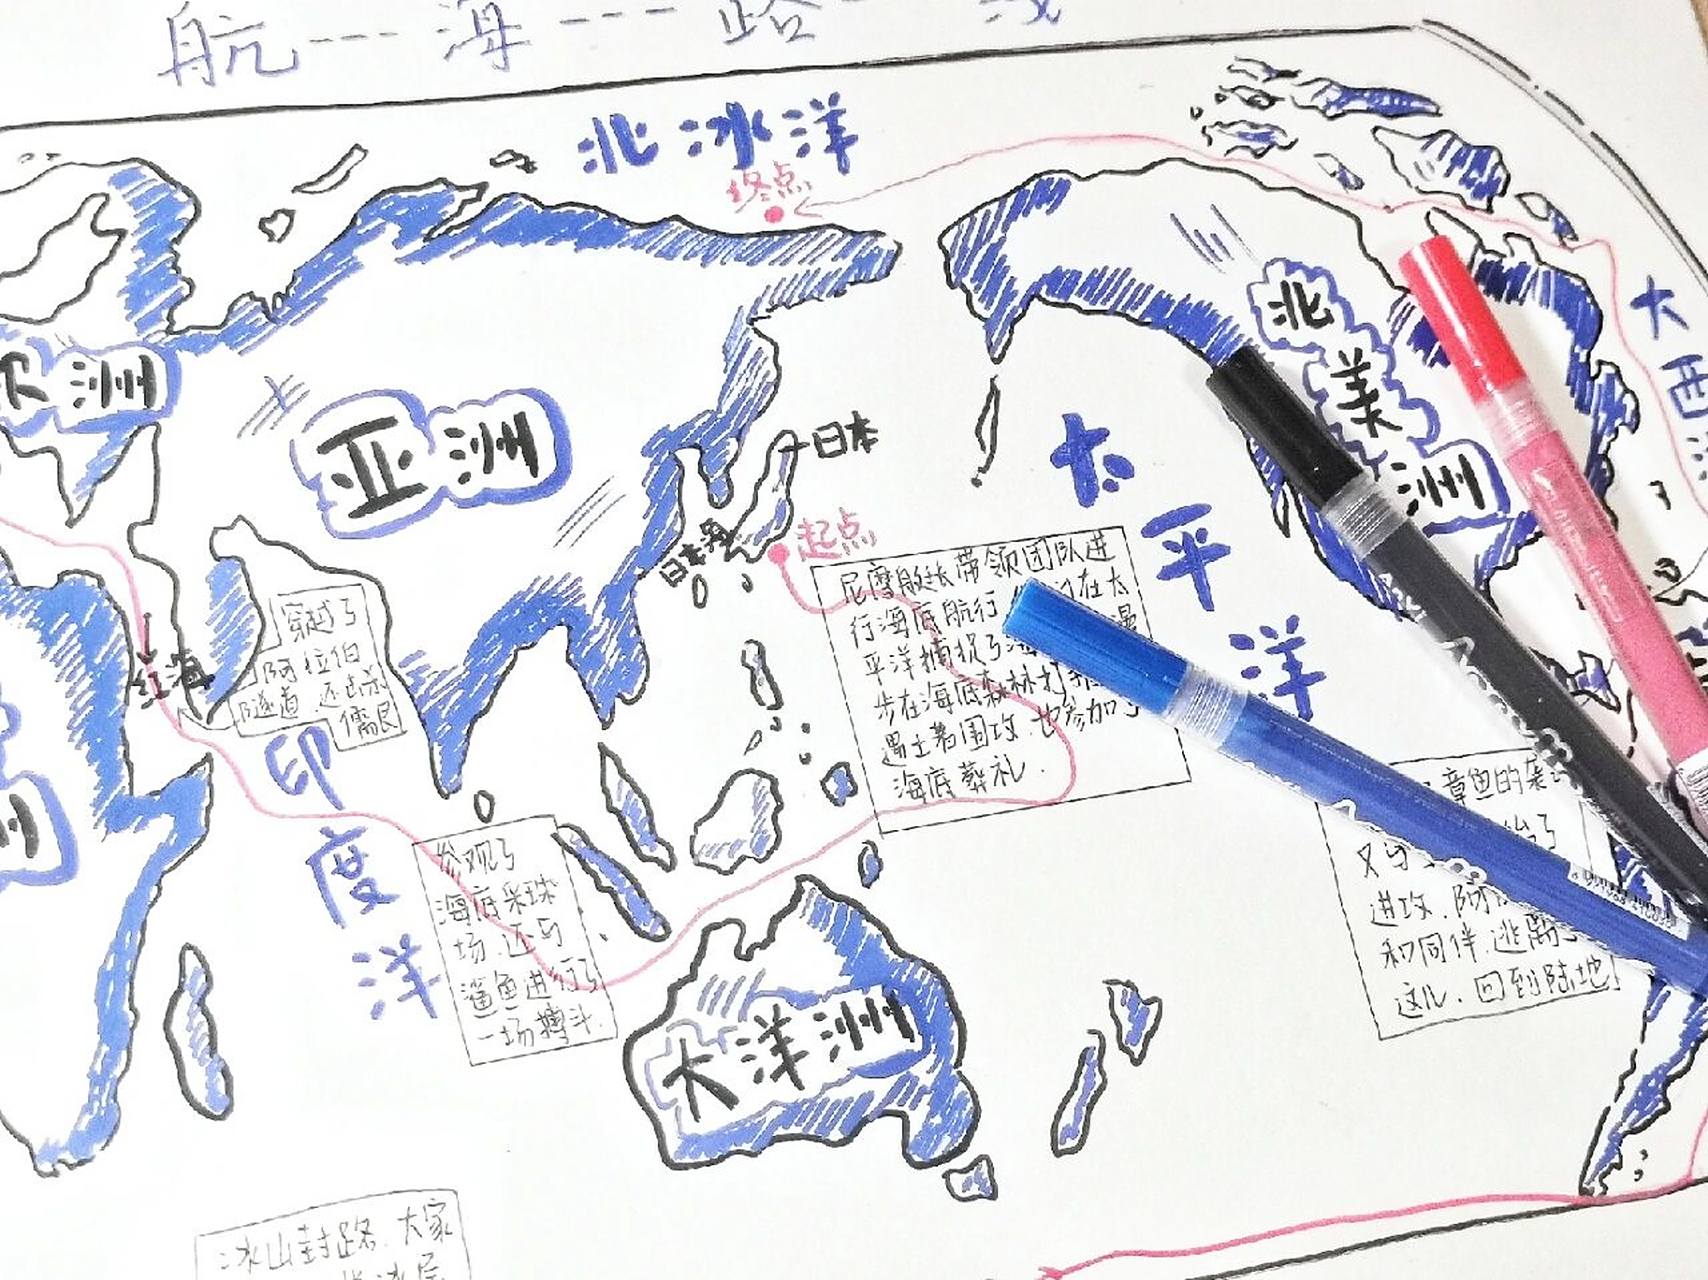 航---海---路---线
北冰洋
终点
大西洋
北美洲
亚洲
洲
日本
日本海
起点
太平洋
尼摩艇长带领团队进
行海底航行 在太
平洋捕捉了海 漫
步在海底森林
遇土著围攻.也参加了
海底葬礼.
穿越了
阿拉伯
隧道.还
儒艮
红海
印度洋
参观了
海底采珠
场.还与
鲨鱼进行了
一场搏斗.
章鱼的袭
又与
进攻.阿
和同伴.逃离了
这儿.回到陆地
大洋洲
洲
冰山封路.大家
冰层